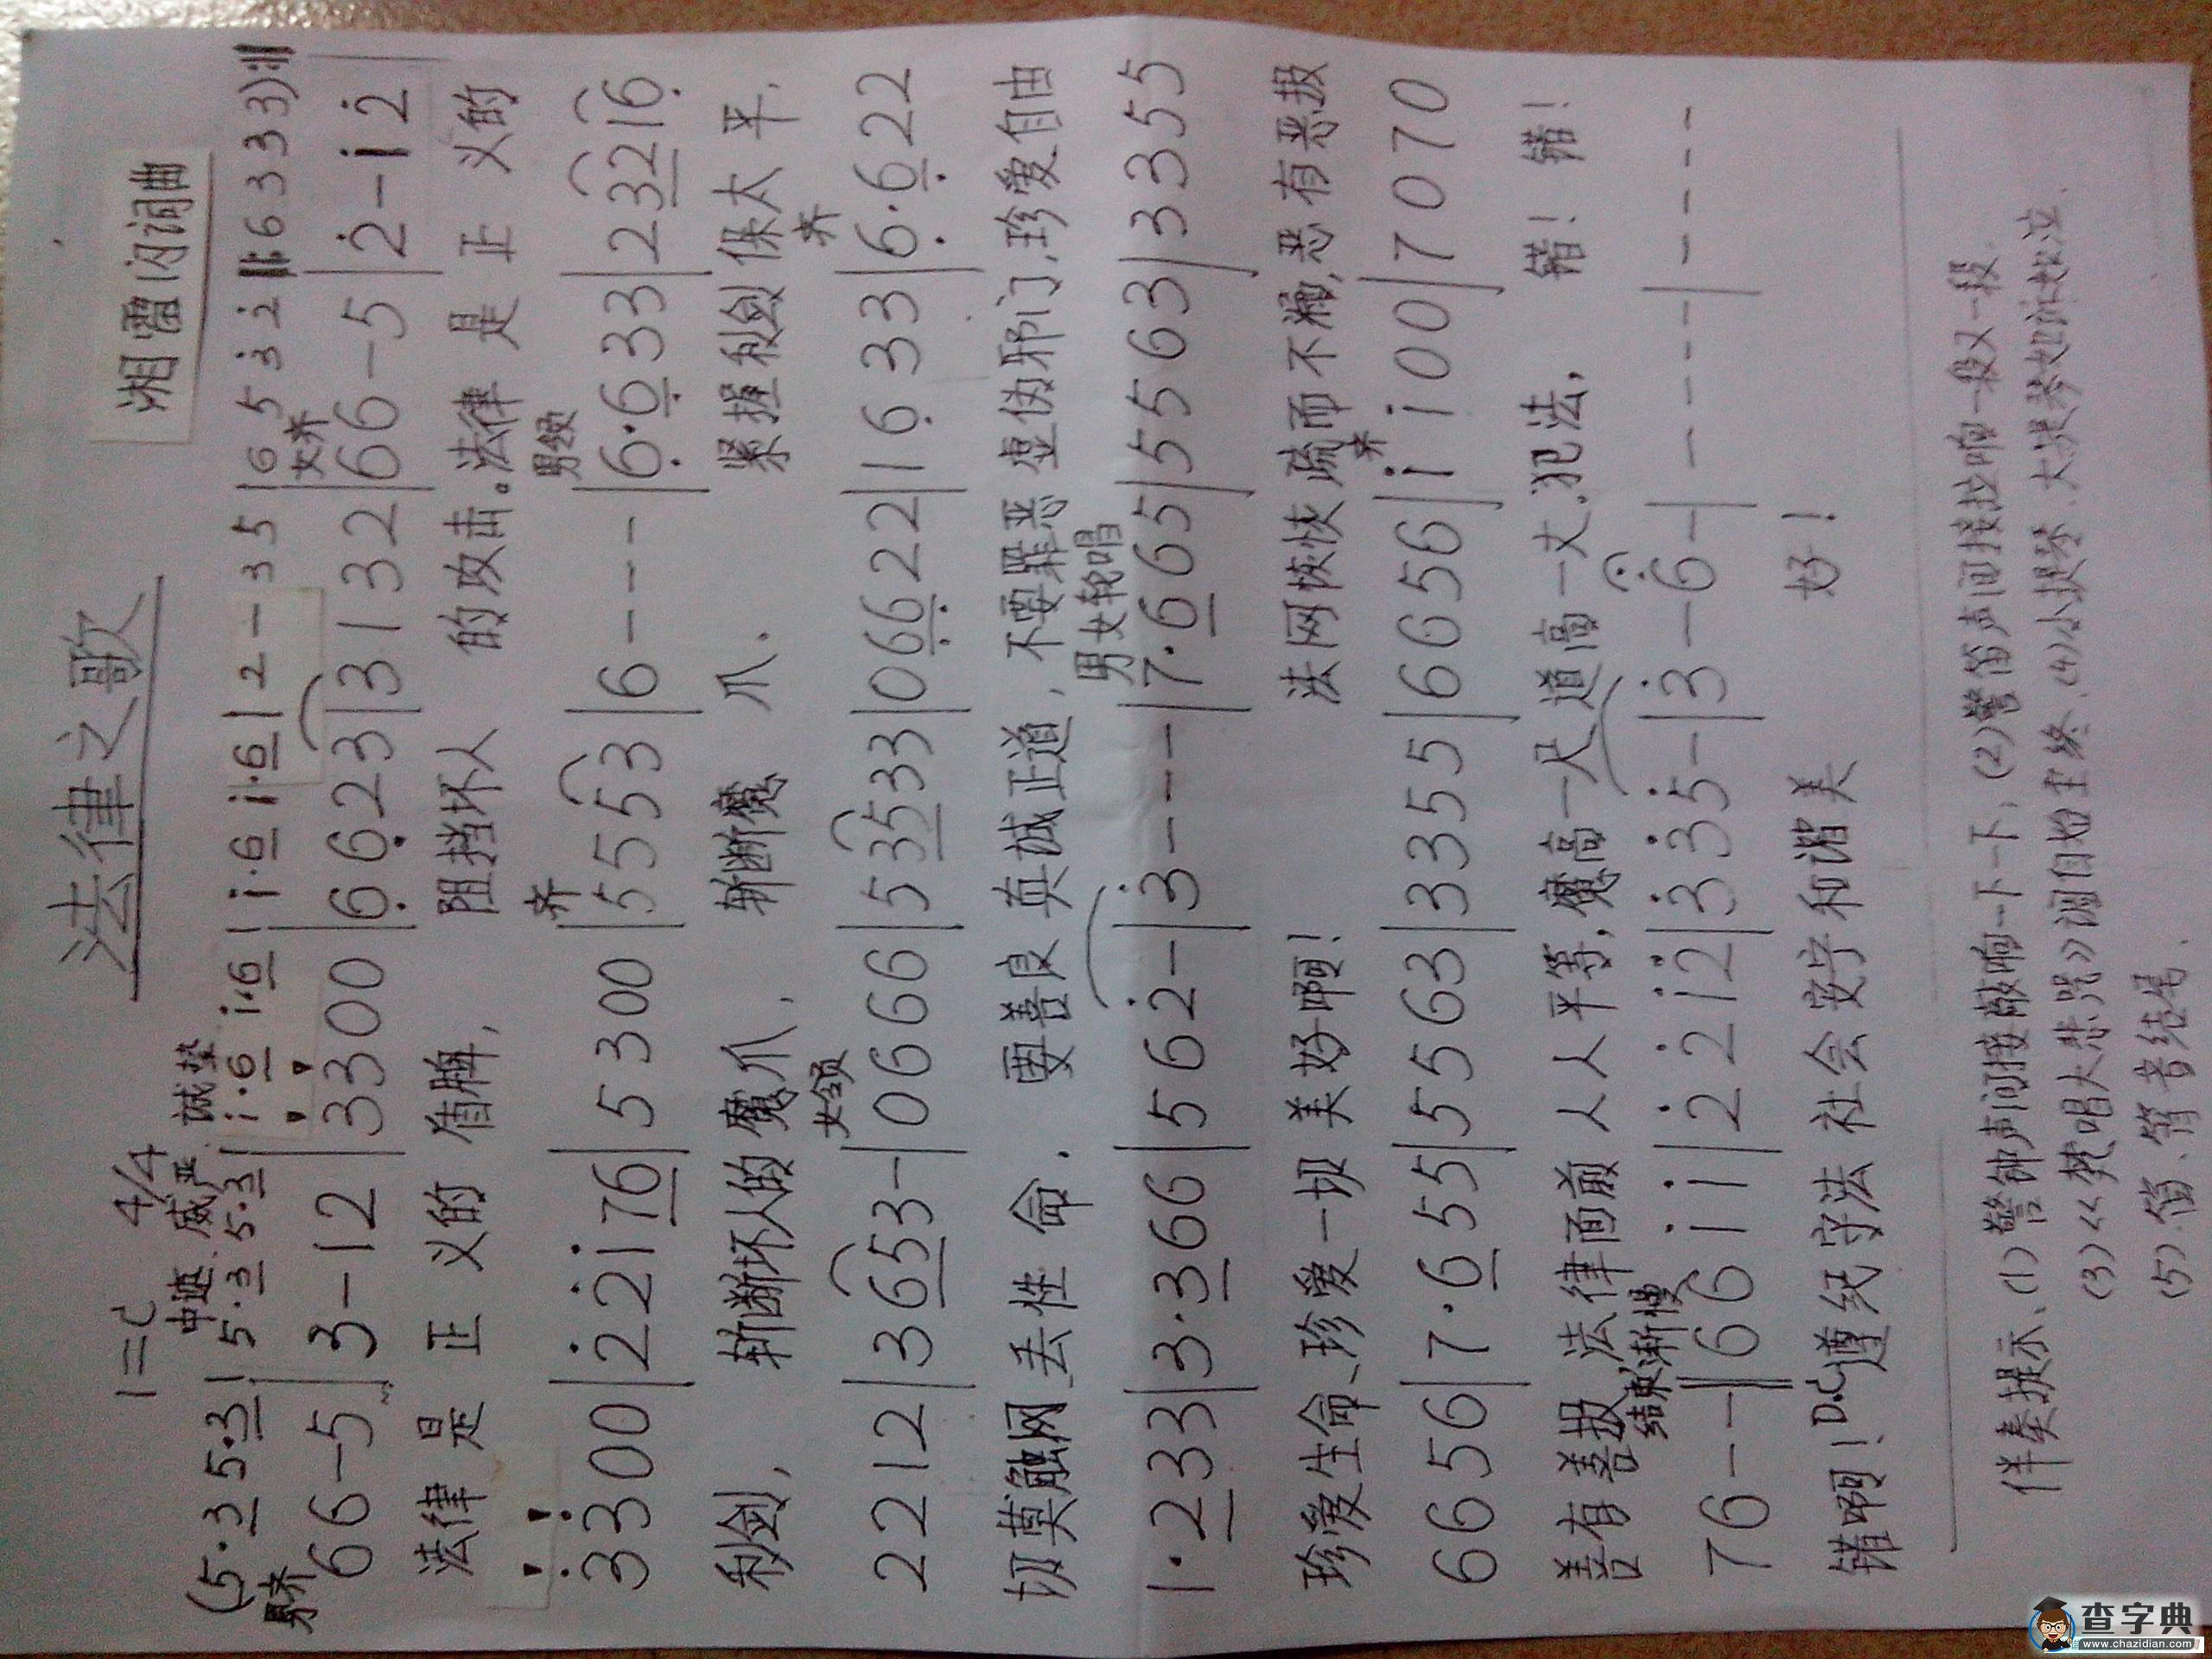 法律之歌
1=C 4/4
湘雷闪词曲
中速、威严、诚挚
(5·3 5·3 | 5·3 5·3 5·3 | i·6 i·6 | i·6 i·6 | 2 — 3 5 | 6 5 3 2 ‖: 6 3 3 3 3) :‖
男齐 女齐
6 6 — 5 | 3 — 1 2 | 3 3 0 0 | 6 6 2 3 | 3 1 3 2 | 6 6 — 5 | 2 — i 2
法律 是 正 义的 盾牌, 阻挡坏人 的攻击。法律 是 正 义的
齐 男领
3 3 0 0 | 2 2 i 7 6 | 5 3 0 0 | 5 5 5 3 | 6 — — — | 6·6 3 3 | 2 3 2 1 6
利剑, 斩断坏人的魔爪、 斩断魔 爪. 紧握利剑保太平.
女领 齐
2 2 1 2 | 3 6 5 3 — | 0 6 6 6 | 5 3 5 3 3 | 0 6 6 2 2 | 1 6 3 3 | 6·6 2 2
切莫触网、丢性 命. 要善良真诚正道, 不要罪恶虚伪邪门、珍爱自由
男女轮唱
1·2 3 3 | 3·3 6 6 | 5 6 2 — | 3 — — — | 7·6 6 5 | 5 5 6 3 | 3 3 5 5
珍爱生命、珍爱一切 美好啊! 法网恢恢疏而不漏, 恶有恶报
齐
6 6 5 6 | 7·6 5 5 | 5 5 6 3 | 3 3 5 5 | 6 6 5 6 | i i 0 0 | 7 0 7 0
善有善报 法律面前人人平等, 魔高一尺道高一丈、犯法, 错! 错!
结束渐慢
7 6 — — ‖ 6 6 i i | 2 2 i 2 | 3 3 5 — | 3 — 6 — | — — — — | — — — —
错啊! D.C 遵纪守法社会安宁和谐美 好!
伴奏提示、(1)警钟声间接敲响一下一下; (2)警笛声间接拉响一段又一段.
(3)《梵唱大悲咒》调自始至终、(4)小提琴、大提琴如诉如泣.
(5)、笛、箫音结尾.
查字典
www.chazidian.com